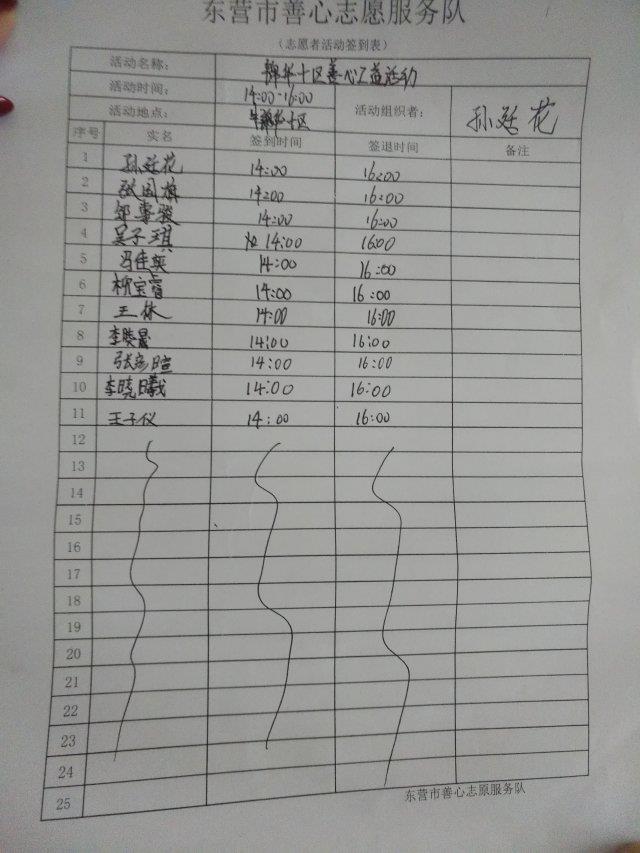 东营市善心志愿服务队
（志愿者活动签到表）
活动名称： 锦华十区善心公益活动
活动时间： 14:00-16:00 活动组织者： 孙廷花
活动地点： 锦华十区
序号 实名 签到时间 签退时间 备注
1 孙廷花 14:00 16:00
2 张国旗 14:00 16:00
3 14:00 16:00
4 吴子琪 14:00 16:00
5 冯佳奕 14:00 16:00
6 宝睿 14:00 16:00
7 王 14:00 16:00
8 李晓晨 14:00 16:00
9 张彦暄 14:00 16:00
10 李晓曦 14:00 16:00
11 王子仪 14:00 16:00
12
13
14
15
16
17
18
19
20
21
22
23
24
25
东营市善心志愿服务队